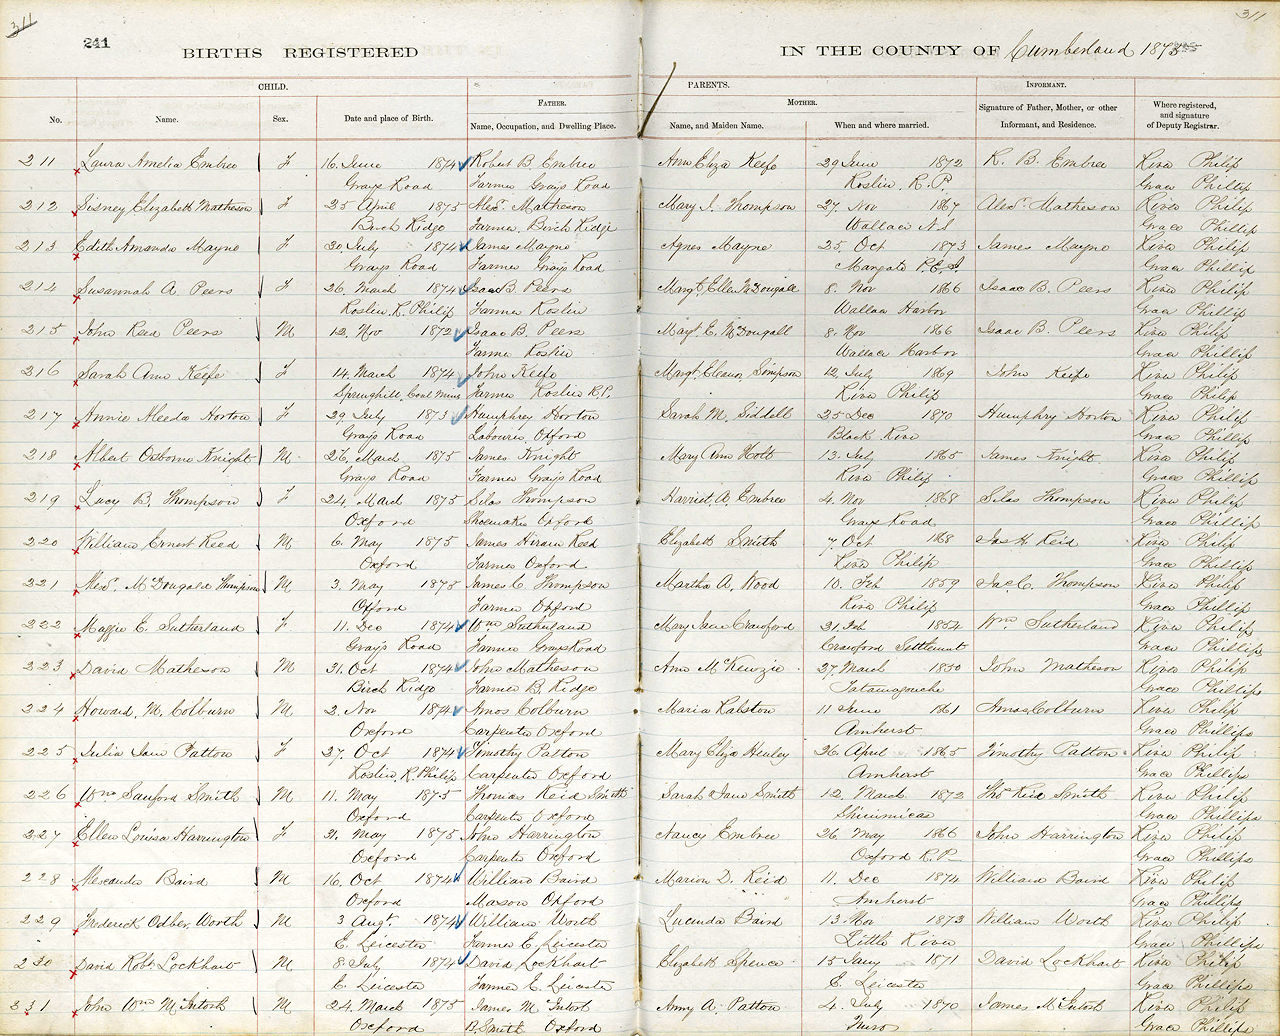 311
311
241
BIRTHS REGISTERED IN THE COUNTY OF Cumberland 1875
CHILD. PARENTS. INFORMANT.
FATHER. MOTHER.
No. Name. Sex. Date and place of Birth. Name, Occupation, and Dwelling Place. Name, and Maiden Name. When and where married. Signature of Father, Mother, or other Informant, and Residence. Where registered, and signature of Deputy Registrar.
211 Laura Amelia Embree F 16 June 1874 Robert B. Embree Ann Eliza Keefe 29 June 1872 R. B. Embree River Philip
Grays Road Farmer Grays Road Roslin R. P. Grace Phillip
212 Elizabeth Matheson F 25 April 1875 Alexr. Matheson Mary I. Thompson 27. Nov 1867 Alexr. Matheson River Philip
Birch Ridge Farmer, Birch Ridge Wallace N.S Grace Phillip
213 Edith Amanda Mayne F 20 July 1874 James Mayne Agnes Mayne 25. Oct 1873 James Mayne River Philip
Grays Road Farmer Grays Road Margate P.E.I. Grace Phillip
214 Susannah A. Peers F 26. March 1874 Isaac B. Peers Margt. Ellen McDougall 8. Nov 1866 Isaac B. Peers River Philip
Roslin, R. Philip Farmer Roslin Wallace Harbor Grace Phillip
215 John Reed Peers M 12. Nov 1872 Isaac B. Peers Margt E. McDougall 8. Nov 1866 Isaac B. Peers River Philip
Farmer Roslin Wallace Harbor Grace Phillip
216 Sarah Ann Keefe F 14. March 1874 John Keefe Margt. Eleanor Simpson 12. July 1869 John Keefe River Philip
Springhill, Coal Mines Farmer Roslin R.P. River Philip Grace Phillip
217 Annie Aleeda Horton F 29 July 1873 Humphrey Horton Sarah M. Siddell 25 Dec 1870 Humphry Horton River Philip
Grays Road Labourer Oxford Black River Grace Phillip
218 Albert Osborne Knight M 26. March 1875 James Knight Mary Ann Holt 13. July 1865 James Knight River Philip
Grays Road Farmer Grays Road River Philip Grace Phillip
219 Lucy B. Thompson F 24. March 1875 Silas Thompson Harriet A. Embree 4. Nov 1868 Silas Thompson River Philip
Oxford Shoemaker Oxford Grays Road Grace Phillip
220 William Ernest Reed M 6. May 1875 James Hiram Reed Elizabeth Smith 7. Oct 1868 Jas H. Reid River Philip
Oxford Farmer Oxford River Philip Grace Phillip
221 Alexr. McDougald Thompson M 3. May 1875 James C. Thompson Martha A. Wood 10. Feb 1859 Jas. C. Thompson River Philip
Oxford Farmer Oxford River Philip Grace Phillip
222 Maggie E. Sutherland F 11. Dec 1874 Wm Sutherland Mary Jane Crawford 21. Feb 1854 Wm. Sutherland River Philip
Grays Road Farmer Grays Road Crawford Settlement Grace Phillip
223 David Matheson M 31. Oct 1874 John Matheson Ann McKenzie 27. March 1850 John Matheson River Philip
Birch Ridge Farmer B. Ridge Tatamagouche Grace Phillips
224 Howard, M. Colburn M 2. Nov 1874 Amos Colburn Maria Ralston 11 June 1861 Amos Colburn River Philip
Oxford Carpenter Oxford Amherst Grace Phillips
225 Julia Jane Patton F 27. Oct 1874 Timothy Patton Mary Eliza Henley 26 April 1865 Timothy Patton River Philip
Roslin, R. Philip Carpenter Oxford Amherst Grace Phillips
226 Wm Sanford Smith M 11. May 1875 Thomas Reid Smith Sarah Jane Smith 12. March 1872 Thos Reid Smith River Philip
Oxford Carpenter Oxford Shinimicas Grace Phillips
227 Ellen Louisa Harrington F 21. May 1875 John Harrington Nancy Embree 26 May 1866 John Harrington River Philip
Oxford Carpenter Oxford Oxford R.P Grace Phillips
228 Alexander Baird M 16. Oct 1874 William Baird Marion D. Reid 11. Dec 1874 William Baird River Philip
Oxford Mason Oxford Amherst Grace Phillips
229 Frederick Odber Worth M 3 Augt. 1874 William Worth Lucinda Baird 13. Nov 1873 William Worth River Philip
E. Leicester Farmer E. Leicester Little River Grace Phillips
230 David Robt. Lockhart M 8. July 1874 David Lockhart Elizabeth Spence 15 Jany 1871 David Lockhart River Philip
E. Leicester Farmer E. Leicester E. Leicester Grace Phillips
231 John Wm McIntosh M 24. March 1875 James McIntosh Anny A. Patton 4. July 1870 James McIntosh River Philip
Oxford B. Smith Oxford Truro Grace Phillips